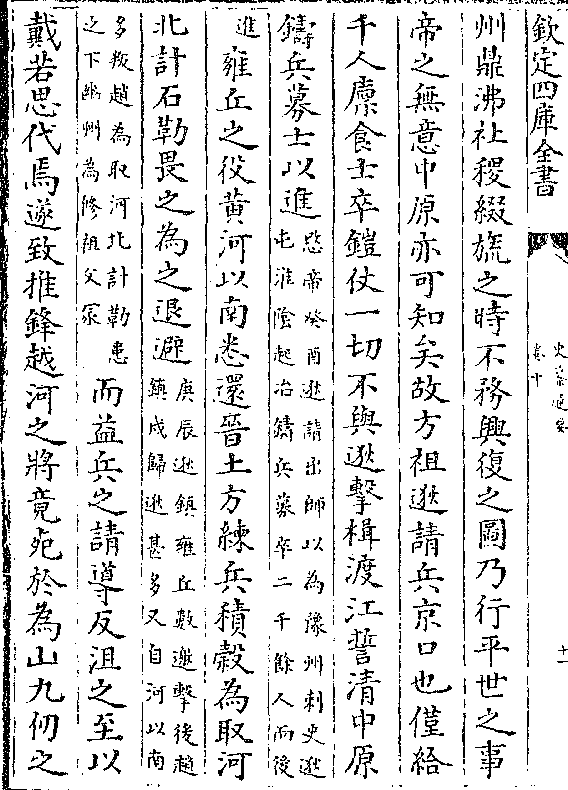 欽定四庫全書
史纂通要
卷十
十一
州鼎沸社稷綴旒之時不務興復之圖乃行平世之事
帝之無意中原亦可知矣故方祖逖請兵京口也僅給
千人廪食士卒鎧仗一切不與逖擊楫渡江誓清中原
鑄兵募士以進
愍帝癸酉逖請出師以為豫州刺史逖
屯淮陰起冶鑄兵募卒二千餘人而後
進
雍丘之役黄河以南悉還晉土方練兵積穀為取河
北計石勒畏之為之退避
庚辰逖鎮雍丘數邀擊後趙
鎮戍歸逖甚多又自河以南
多叛趙為取河北計勒患
之下幽州為修祖父冢
而益兵之請導反沮之至以
戴若思代焉遂致推鋒越河之將竟死於為山九仞之